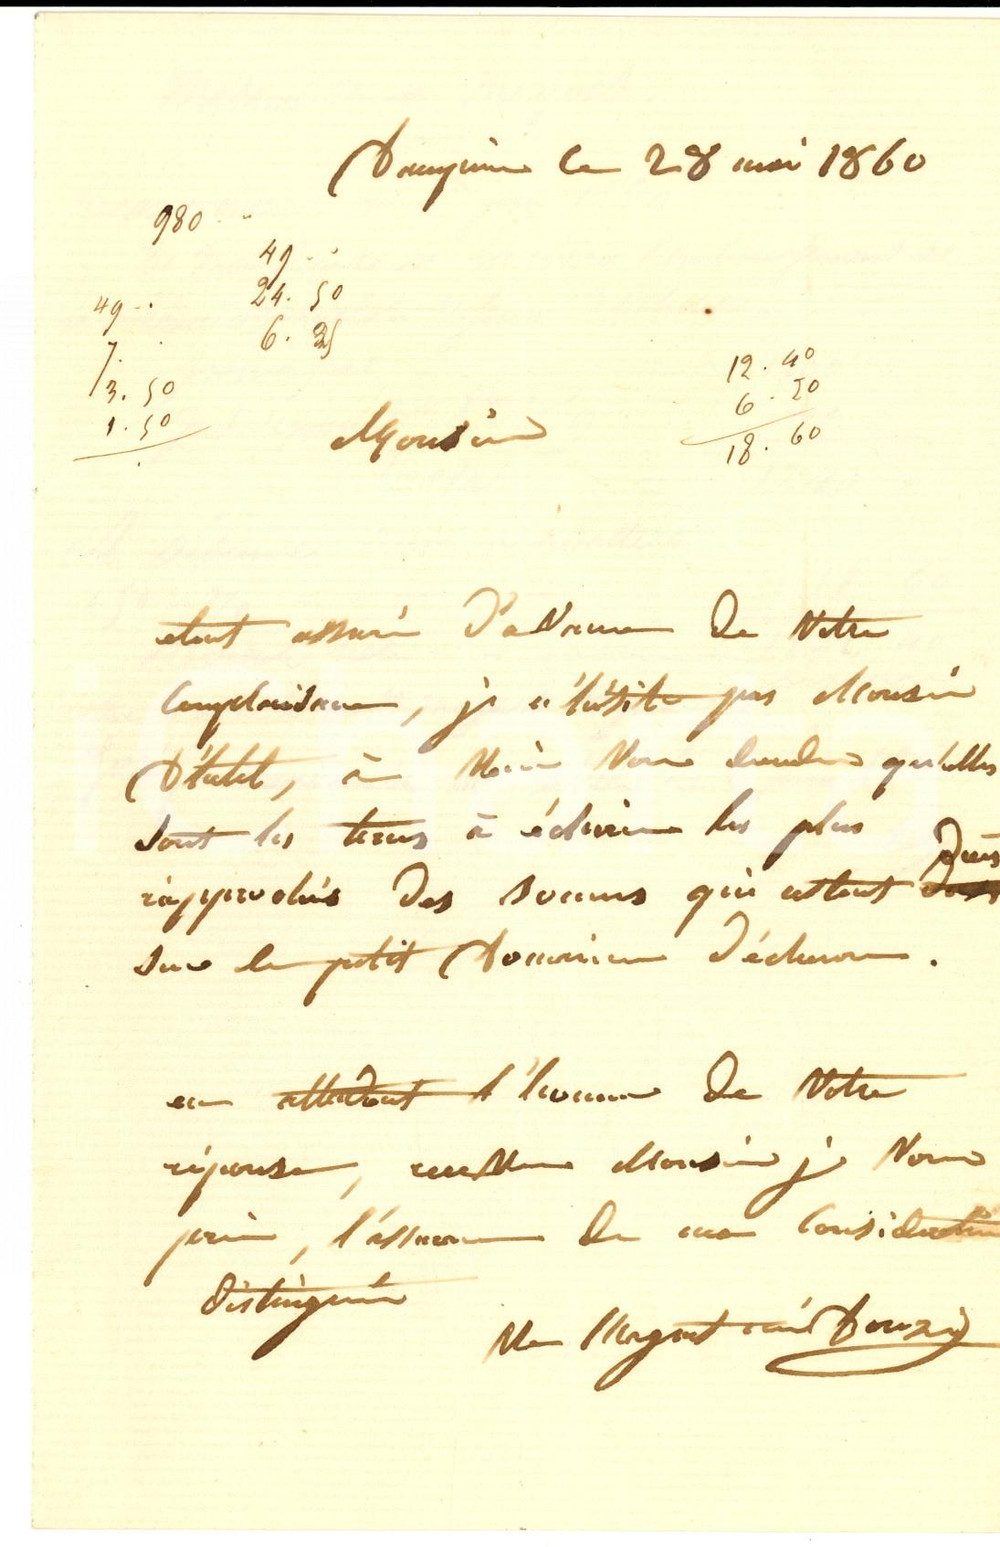 le 28 mai 1860
980
49
49
24. 50
7.
6. 25
3. 50
12. 40
1. 50
6. 20
Monsieur
18. 60
etant assuré d'avance de Votre
complaisance, je n'hésite pas Monsieur
à Venir Vous demander qu'elles
sont les terres à échoir les plus
rapprochés des sommes qui restent dues
sur le petit Domaine
en attendant l'honneur de Votre
réponse, recevez Monsieur je Vous
prie, l'assurance de ma Considération
distinguée
Ve née